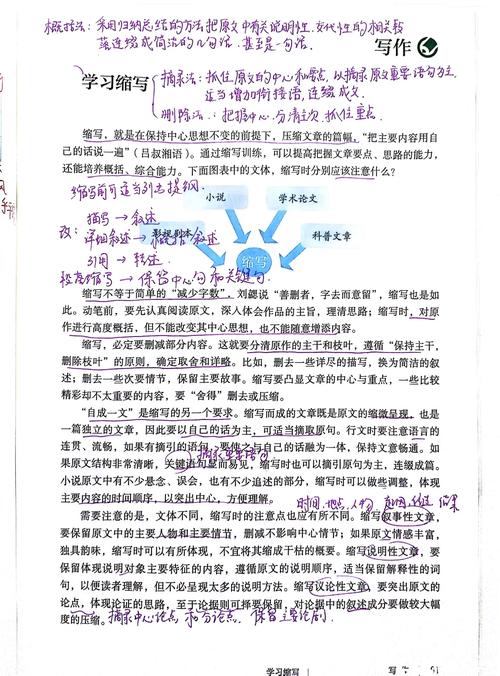 概括法：采用归纳总结的方法把原文中有关说明性、交代性的相关段
落连缀成简洁的几句话，甚至是一句话。
写作
学习缩写
摘录法：抓住原文的中心和要点，以摘录原文重要语句为主，
适当增加衔接语，连缀成文。
删除法：把握中心，分清主次，抓住重点。
缩写，就是在保持中心思想不变的前提下，压缩文章的篇幅，“把主要内容用自
己的话说一遍”（吕叔湘语）。通过缩写训练，可以提高把握文章要点、思路的能力，
还能培养概括、综合能力。下面图表中的文体，缩写时分别应该注意什么？
缩写前可适当列出提纲。
小说
学术论文
改：
描写→叙述
影视剧本
详细叙述→概括叙述
科普文章
缩写
引用→转述
较高缩写→保留中心句和关键句。
缩写不等于简单的“减少字数”，刘勰说“善删者，字去而意留”，缩写也是如
此。动笔前，要先认真阅读原文，深入体会作品的主旨，理清思路；缩写时，对原
作进行高度概括，但不能改变其中心思想，也不能随意增添内容。
缩写，必定要删减部分内容。这就要分清原作的主干和枝叶，遵循“保持主干，
删除枝叶”的原则，确定取舍和详略。比如，删去一些详尽的描写，换为简洁的叙
述；删去一些次要情节，保留主要故事。缩写要凸显文章的中心与重点，一些比较
精彩却不太重要的内容，要“舍得”删去或压缩。
“自成一文”是缩写的另一个要求。缩写而成的文章既是原文的缩微呈现，也是
一篇独立的文章，因此要以自己的话为主，可适当摘取原句。行文时要注意语言的
连贯、流畅，如果有摘引的语句，要使之与自己的话融为一体，保持文意畅通。如
果原文结构非常清晰，关键语句显而易见，缩写时也可以摘引原句为主，连缀成篇。
小说原文中有不少悬念、误会，也有不少追述的部分，缩写时可以做些调整，体现
主要内容的时间顺序，以突出中心，方便理解。
时间、地点、人物、起因、经过、结果
需要注意的是，文体不同，缩写时的注意点也应有所不同。缩写叙事性文章，
要保留原文中的主要人物和主要情节，删减不影响中心情节；如果原文情感丰富，
独具韵味，缩写时可以有所体现，不宜将其缩成干枯的概要。缩写说明性文章，要
保留体现说明对象主要特征的内容，遵循原文的说明顺序，适当保留解释性的词
句，以便读者理解，但不必呈现太多的说明方法。缩写议论性文章，要突出原文的
论点，体现论证的思路，至于论据则可择要保留，对论据中的叙述成分要做较大幅
度的压缩。
摘录中心论点和分论点，保留主要论据。
学习缩写
写
91